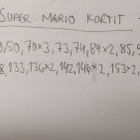 SUPER MARIO KORTIT
,50,70×3,73,74,84×2,85,
,133,136×2,142,146×2,153×2,